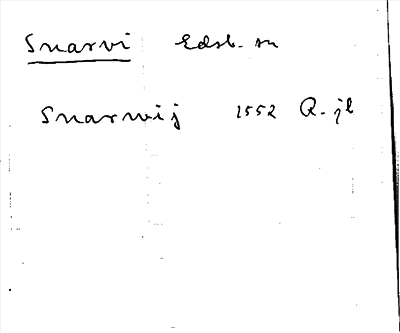 Snarvi Edsb. sn
Snarwij 1552 Q. jb